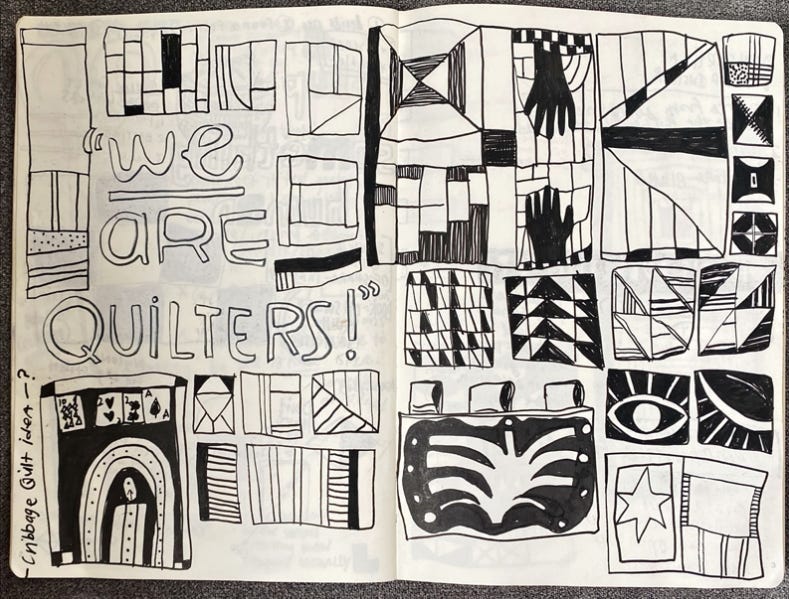 "We
ARE
QUILTERS!"
- Cribbage Quilt idea -?
A
A
3